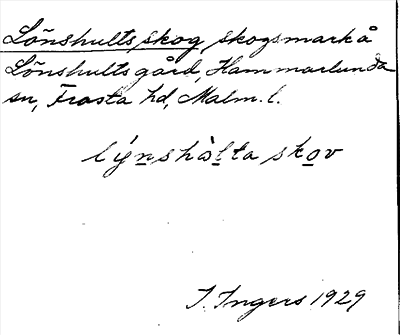 Lönshults skog skogsmark å
Lönshults gård, Hammarlunda
sn, Frosta hd, Malm. l.
lýnshàlta skov
I. Ingers 1929